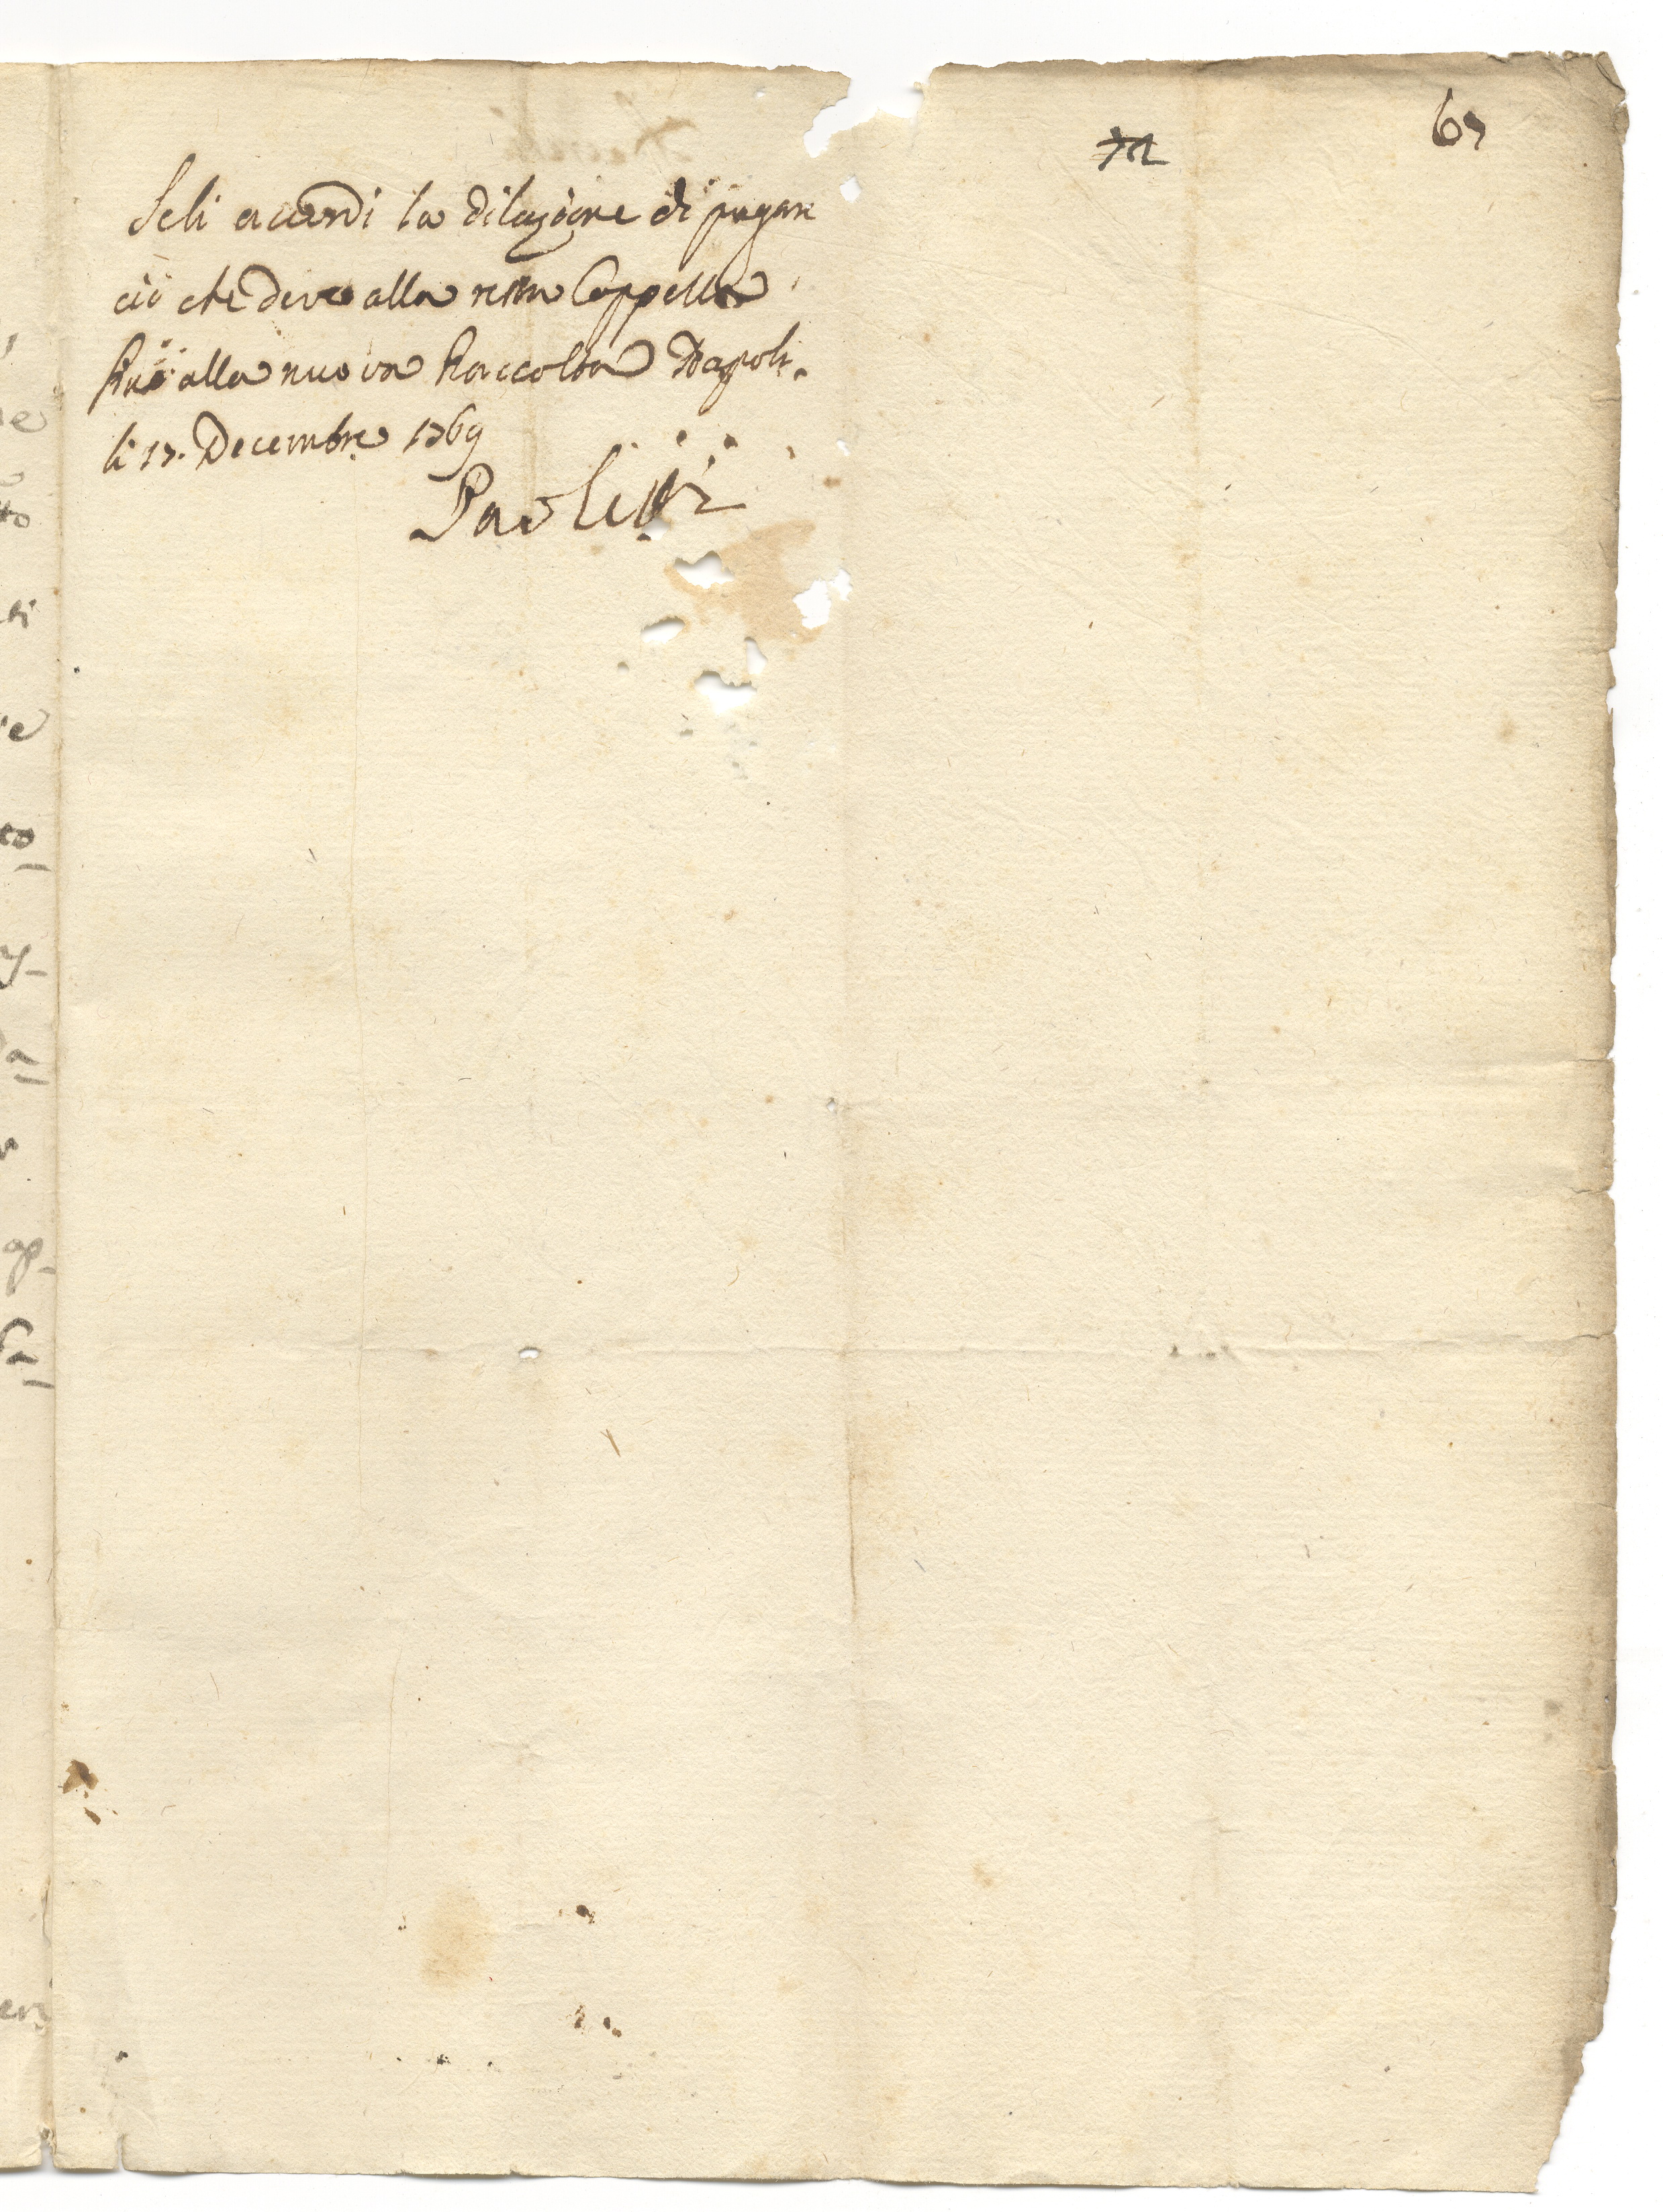 67
72
Seli accordi la dilazione di pagare
ciò che deve alla Cappella
alla nuova Raccolta Napoli
li 17. Decembre 1769
Paoletti